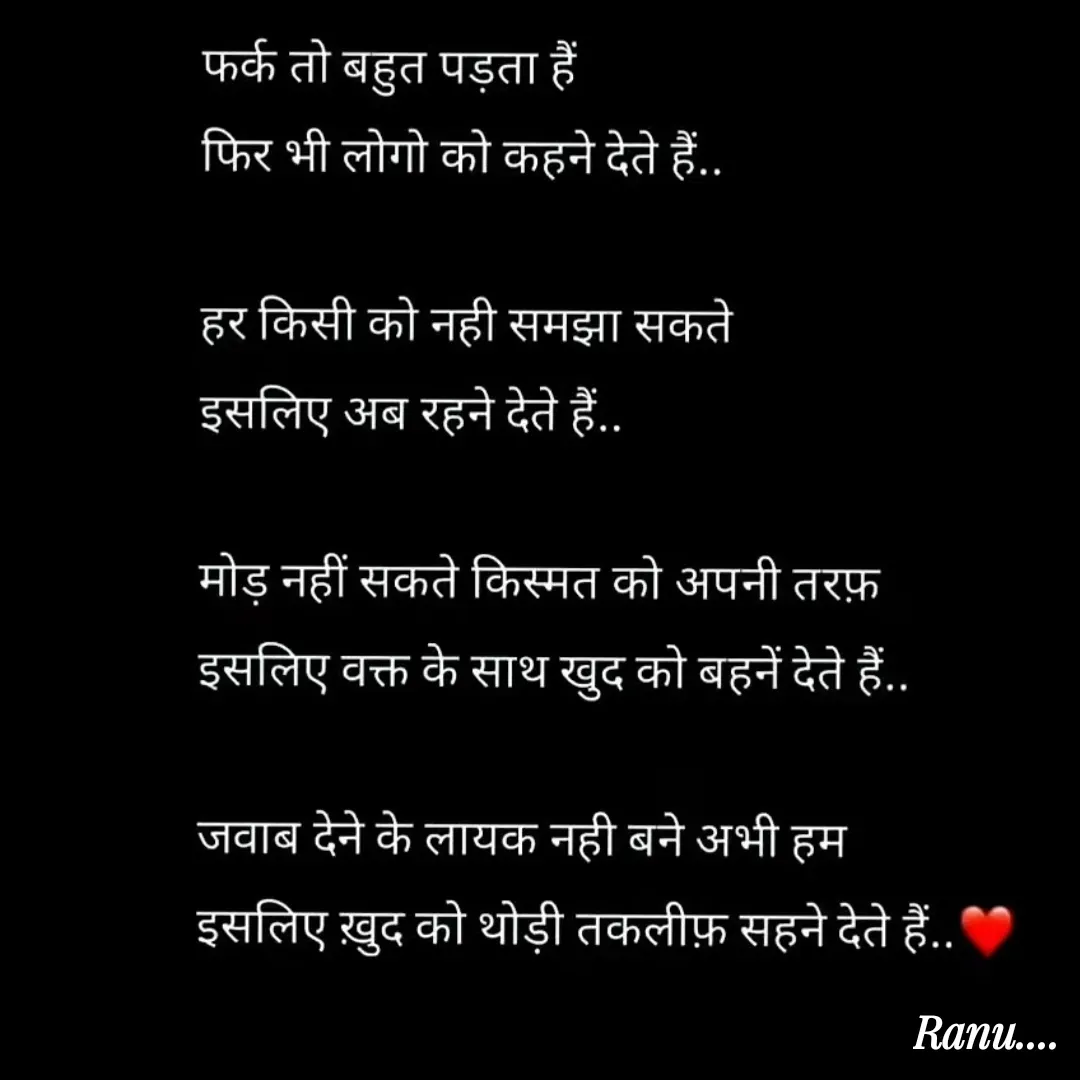 फर्क तो बहुत पड़ता हैं
फिर भी लोगो को कहने देते हैं..
हर किसी को नही समझा सकते
इसलिए अब रहने देते हैं..
मोड़ नहीं सकते किस्मत को अपनी तरफ़
इसलिए वक्त के साथ खुद को बहनें देते हैं..
जवाब देने के लायक नही बने अभी हम
इसलिए ख़ुद को थोड़ी तकलीफ़ सहने देते हैं..❤️
Ranu....